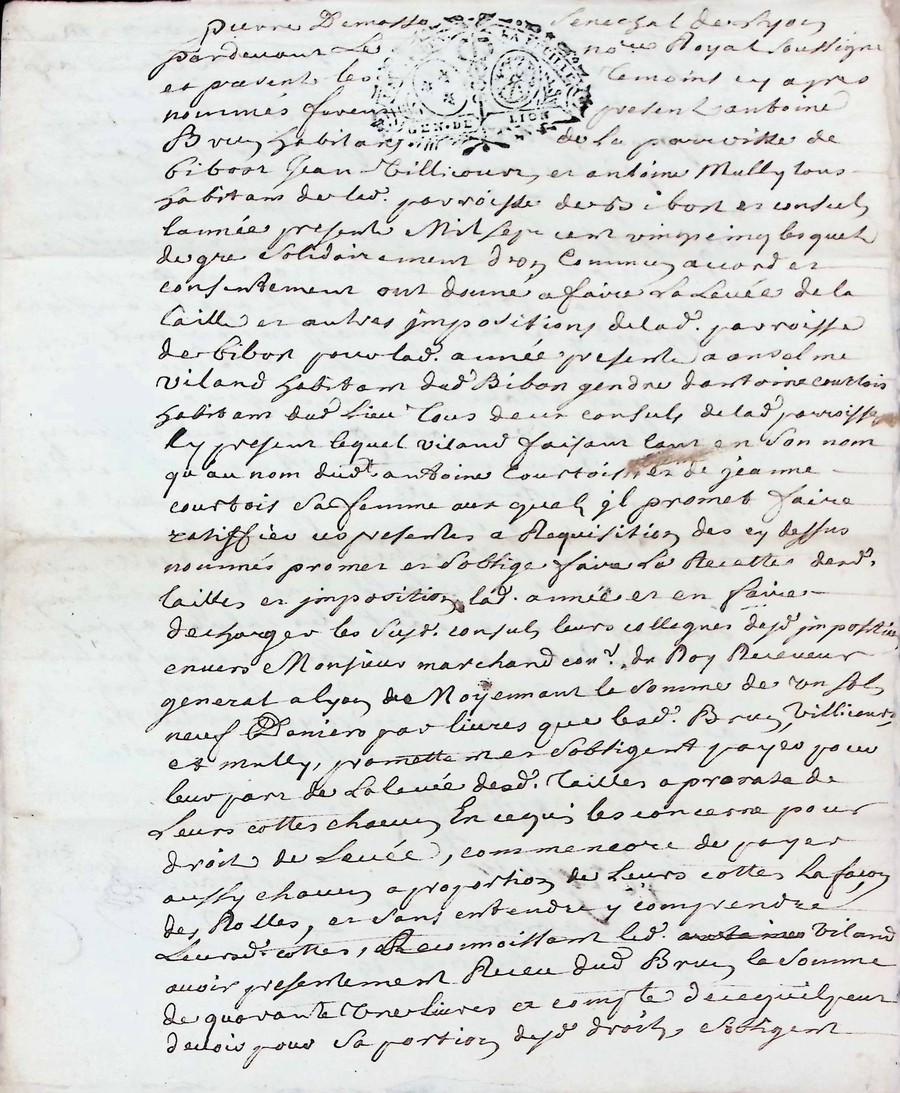 Pierre Demosso Senechal de Lyon
pardevant Le no.re Royal Soussigné
et presents les Temoins cy apres
nommes furent present antoine
Brun habitant de la parroisse de
bibost Jean Villicour et antoine Mully tous
habitans de lad. parroisse de Bibost et consuls
lannée presente Mil sept cent vingt cinq lesquels
de gre Solidairement d'un Commun accord et
consentement ont donné a faire La Levée de la
Taille et autres jmpositions de lad. parroisse
de bibost pour lad. année presente a anselme
viland habitant dud Bibost gendre d'antoine courtois
habitant dud Lieu Tous deux consuls de lad parroisse
Icy present lequel viland faisant tant en son nom
qu'au nom dud.t antoine Courtois et de jeanne
courtois sa femme auxquels jl promet faire
ratiffier ces presentes a Requisition des cy dessus
nommés promet et s'oblige faire La Recette desd.
tailles et jmpositions lad. année et en faire
decharger les susd. consuls leurs collegues desd jmpositions
envers Monsieur marchand con.r du Roy Receveur
general a lyon Moyennant la Somme de un sol
neuf Deniers par livres que lesd. Brun, Villicour
et mully, promettent et s'obligent payer pour
leur part de La levée desd. Tailles a prorata de
Leurs cottes chacun En ce qui les concerne pour
droit de Levée, comme encore de payer
aussy chacun a proportion de Leurs cottes La façon
des Rolles, et sans entendre y comprendre
Leursd. cottes, Reconnoissant led. antoine viland
avoir presentement Receu dud Brun la Somme
de quarante Une livres et compte de ce quil peut
devoir pour Sa portion desd droits, s'obligent
GEN. DE LION